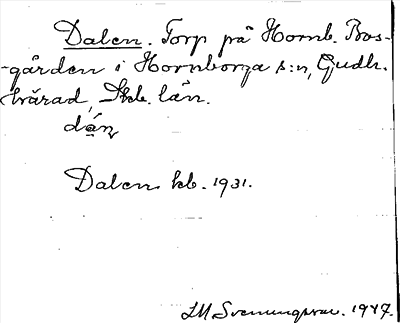 Dalen. Torp på Hornb. Bos-
-gården i Hornborga s:n, Gudh.
härad, Skb. län.
dán
Dalen kb. 1931.
I M Svenungsson. 1947.